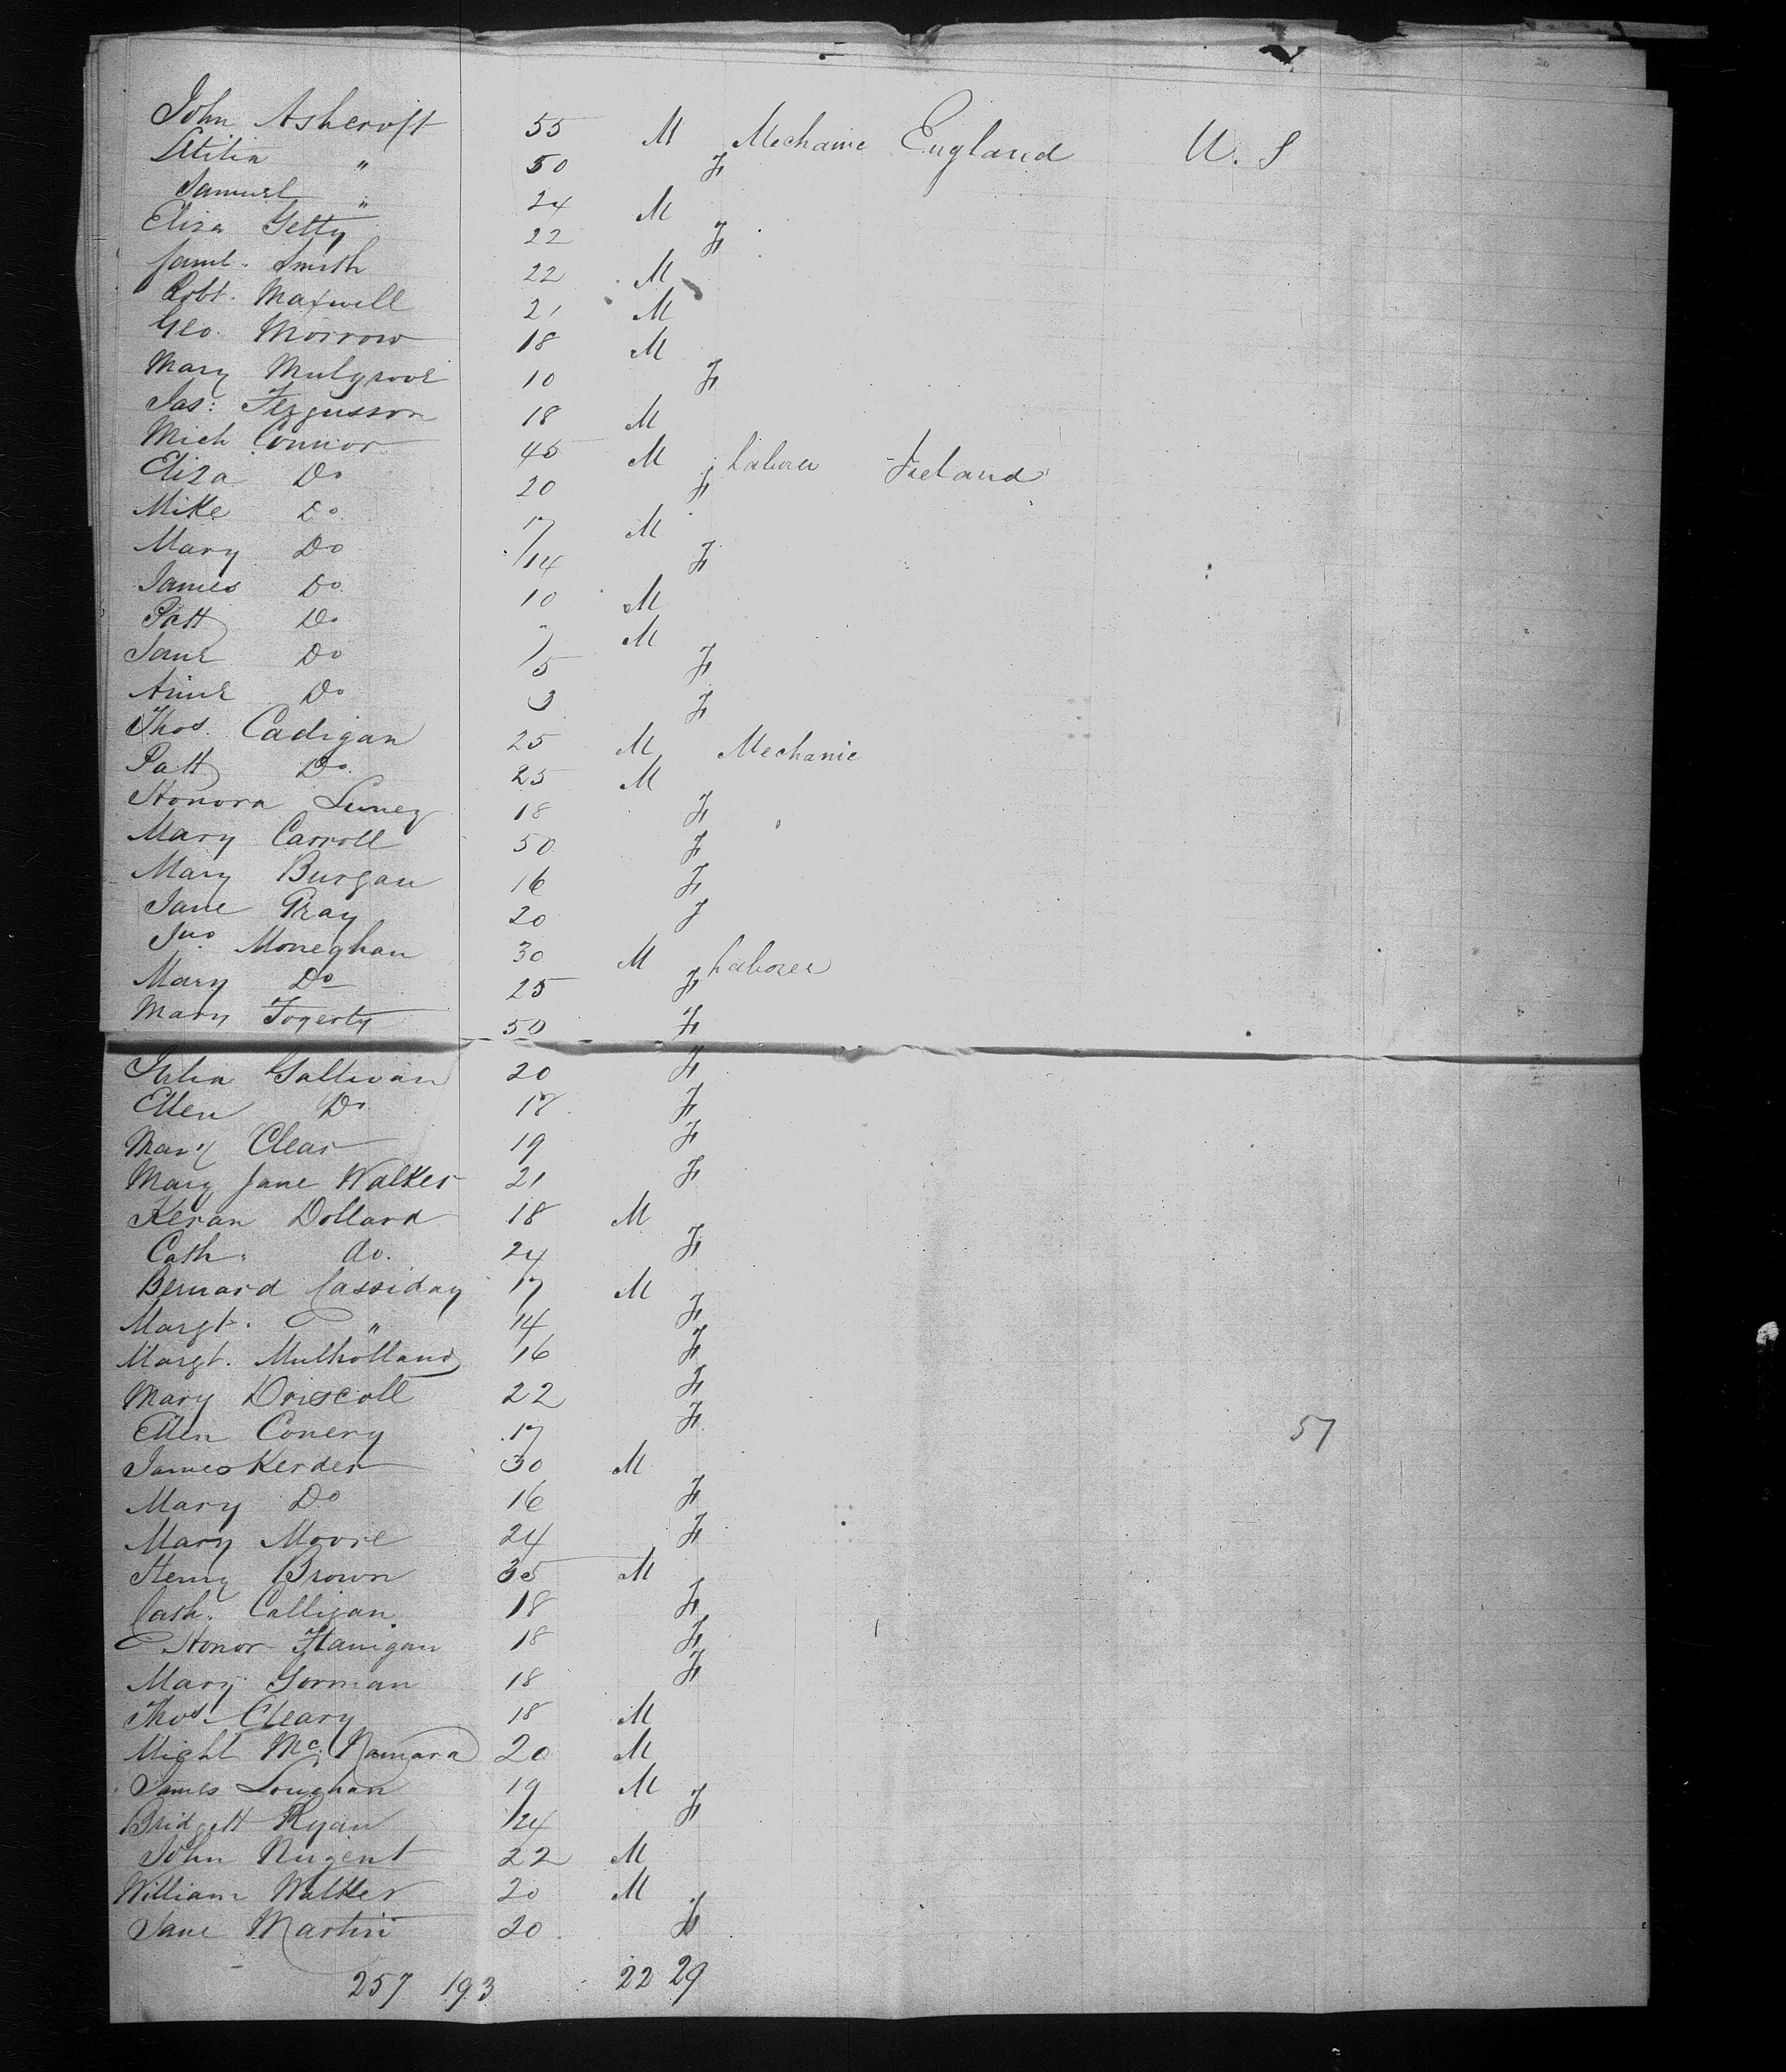 John Ashcroft 55 M Mechanic England U. S
Letitia " 50 F
Samuel " 24 M
Eliza Getty 22 F
Saml. Smith 22 M
Robt. Maxwell 21 M
Geo. Morrow 18 M
Mary Mulgrove 10 F
Jas: Fergusson 18 M
Mich Connor 45 M Laborer Ireland
Eliza Do 20 F
Mike Do 17 M
Mary Do 14 F
James Do 10 M
Patt Do 7 M
Jane Do 5 F
Anne Do 3 F
Thos. Cadigan 25 M Mechanic
Patt Do 25 M
Honora 18 F
Mary Carroll 50 F
Mary Burgan 16 F
Jane Gray 20 F
Jno. Moneghan 30 M Laborer
Mary Do 25 F
Mary Fogerty 50 F
Julia Gallivan 20 F
Ellen Do 18 F
Mary Clear 19 F
Mary Jane Walker 21 F
Keran Dollard 18 M
Cath. do. 24 F
Bernard Cassiday 17 M
Margt. " 14 F
Margt. Mulholland 16 F
Mary Driscoll 22 F
Ellen Conery 17 F 51
James Kerden 30 M
Mary Do 16 F
Mary Moore 24 F
Henry Brown 35 M
Cath. Calligan 18 F
Honor Flanigan 18 F
Mary Gorman 18 F
Thos. Cleary 18 M
Michl McNamara 20 M
James Loughan 19 M
Bridgett Ryan 24 F
John Nugent 22 M
William Walker 20 M
Jane Martin 20 F
257 193 22 29